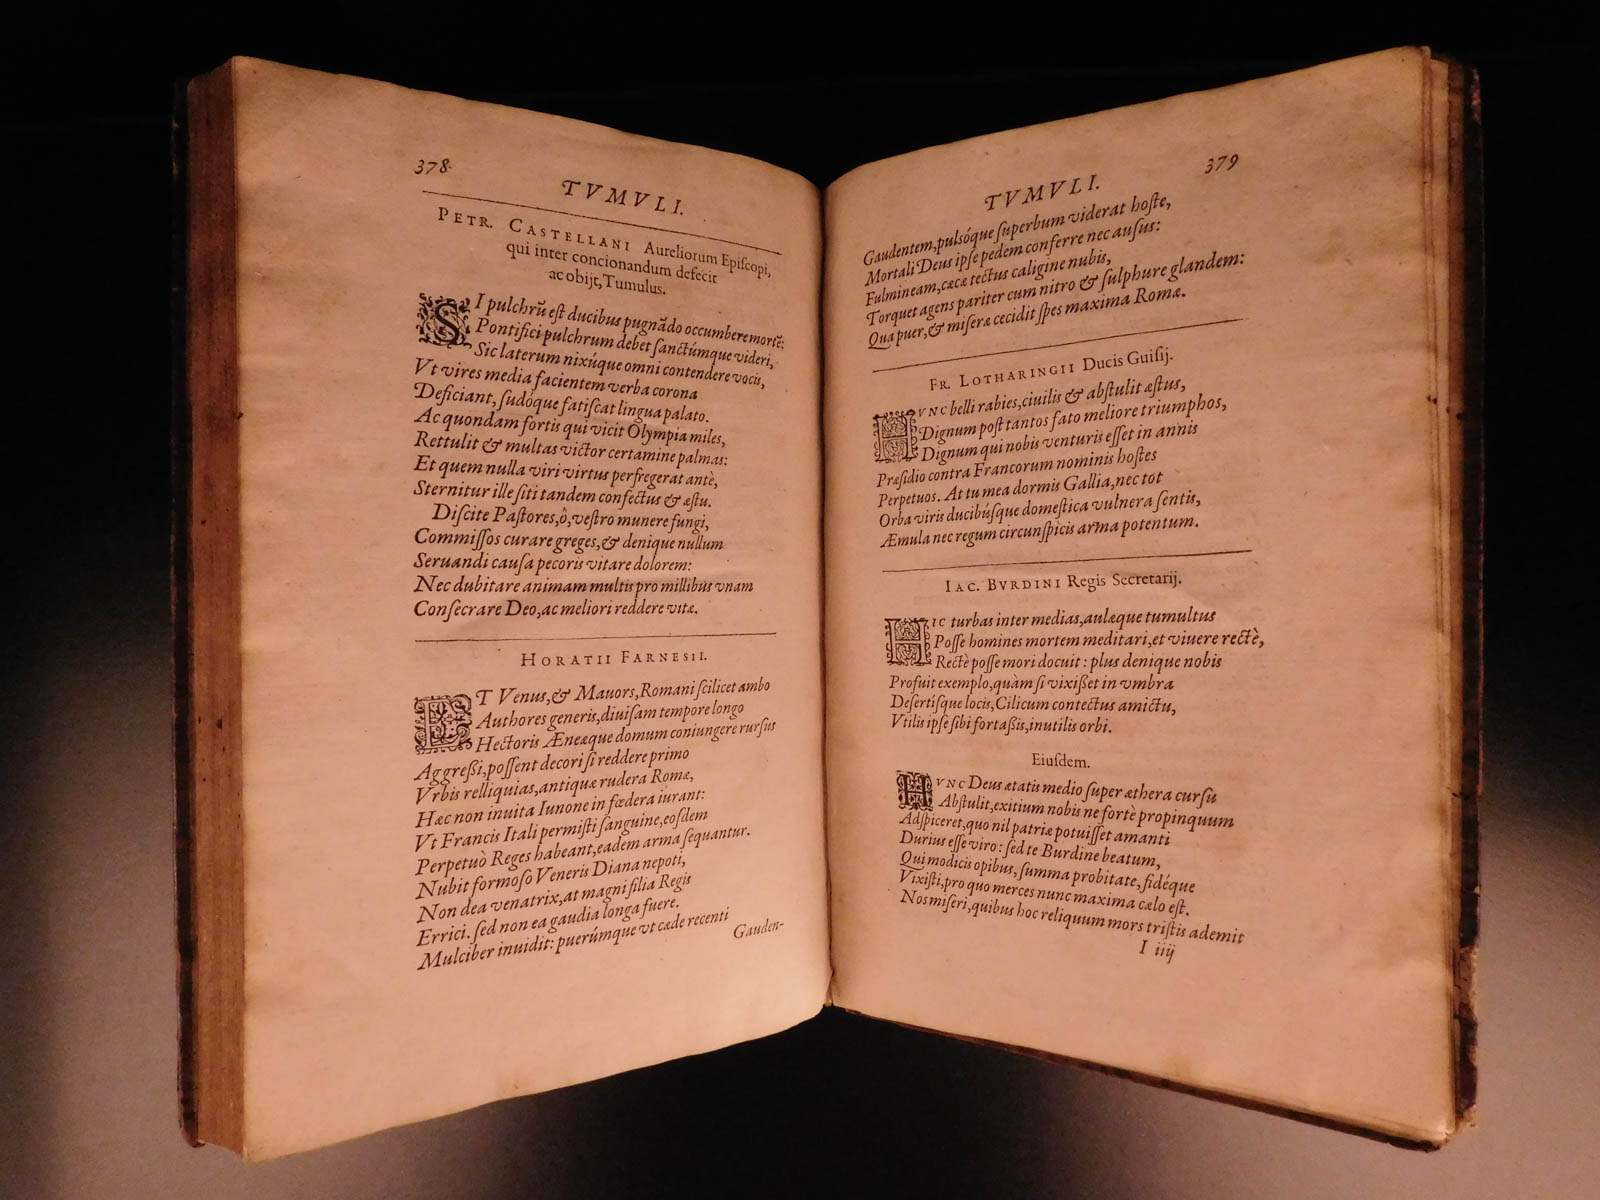 378.
TVMVLI.
PETR. CASTELLANI Aureliorum Epiſcopi,
qui inter concionandum defecit
ac obijt, Tumulus.
SI pulchrũ eſt ducibus pugnãdo occumbere mortẽ:
Pontifici pulchrum debet ſanctúmque videri,
Sic laterum nixúque omni contendere vocis,
Vt vires media facientem verba corona
Deficiant, ſudóque fatiſcat lingua palato.
Ac quondam fortis qui vicit Olympia miles,
Rettulit & multas victor certamine palmas:
Et quem nulla viri virtus perfregerat antè,
Sternitur ille ſiti tandem confectus & æſtu.
Diſcite Paſtores, ô, veſtro munere fungi,
Commiſſos curare greges, & denique nullum
Seruandi cauſa pecoris vitare dolorem:
Nec dubitare animam multis pro millibus vnam
Conſecrare Deo, ac meliori reddere vitæ.
HORATII FARNESII.
ET Venus, & Mauors, Romani ſcilicet ambo
Authores generis, diuiſam tempore longo
Hectoris Æneæque domum coniungere rurſus
Aggreßi, poſſent decori ſi reddere primo
Vrbis relliquias, antiquæ rudera Romæ,
Hæc non inuita Iunone in fœdera iurant:
Vt Francis Itali permiſti ſanguine, eoſdem
Perpetuò Reges habeant, eadem arma ſequantur.
Nubit formoſo Veneris Diana nepoti,
Non dea venatrix, at magni filia Regis
Errici. ſed non ea gaudia longa fuere.
Mulciber inuidit: puerúmque vt cæde recenti
Gauden-
379
TVMVLI.
Gaudentem, pulsóque ſuperbum viderat hoſte,
Mortali Deus ipſe pedem conferre nec auſus:
Fulmineam, cæca tectus caligine nubis,
Torquet agens pariter cum nitro & ſulphure glandem:
Qua puer, & miſeræ cecidit ſpes maxima Romæ.
FR. LOTHARINGII Ducis Guiſij.
HVNC belli rabies, ciuilis & abſtulit æſtus,
Dignum poſt tantos fato meliore triumphos,
Dignum qui nobis venturis eſſet in annis
Præſidio contra Francorum nominis hoſtes
Perpetuos. At tu mea dormis Gallia, nec tot
Orba viris ducibúſque domeſtica vulnera ſentis,
Æmula nec regum circunſpicis arma potentum.
IAC. BVRDINI Regis Secretarij.
HIC turbas inter medias, aulæque tumultus
Poſſe homines mortem meditari, et viuere rectè,
Rectè poſſe mori docuit: plus denique nobis
Profuit exemplo, quàm ſi vixißet in vmbra
Deſertiſque locis, Cilicum contectus amictu,
Vtilis ipſe ſibi fortaßis, inutilis orbi.
Eiuſdem.
HVNC Deus ætatis medio ſuper æthera curſu
Abſtulit, exitium nobis ne fortè propinquum
Adſpiceret, quo nil patriæ potuiſſet amanti
Durius eſſe viro: ſed te Burdine beatum,
Qui modicis opibus, ſumma probitate, fidéque
Vixiſti, pro quo merces nunc maxima cælo eſt.
Nos miſeri, quibus hoc reliquum mors triſtis ademit
I iiij